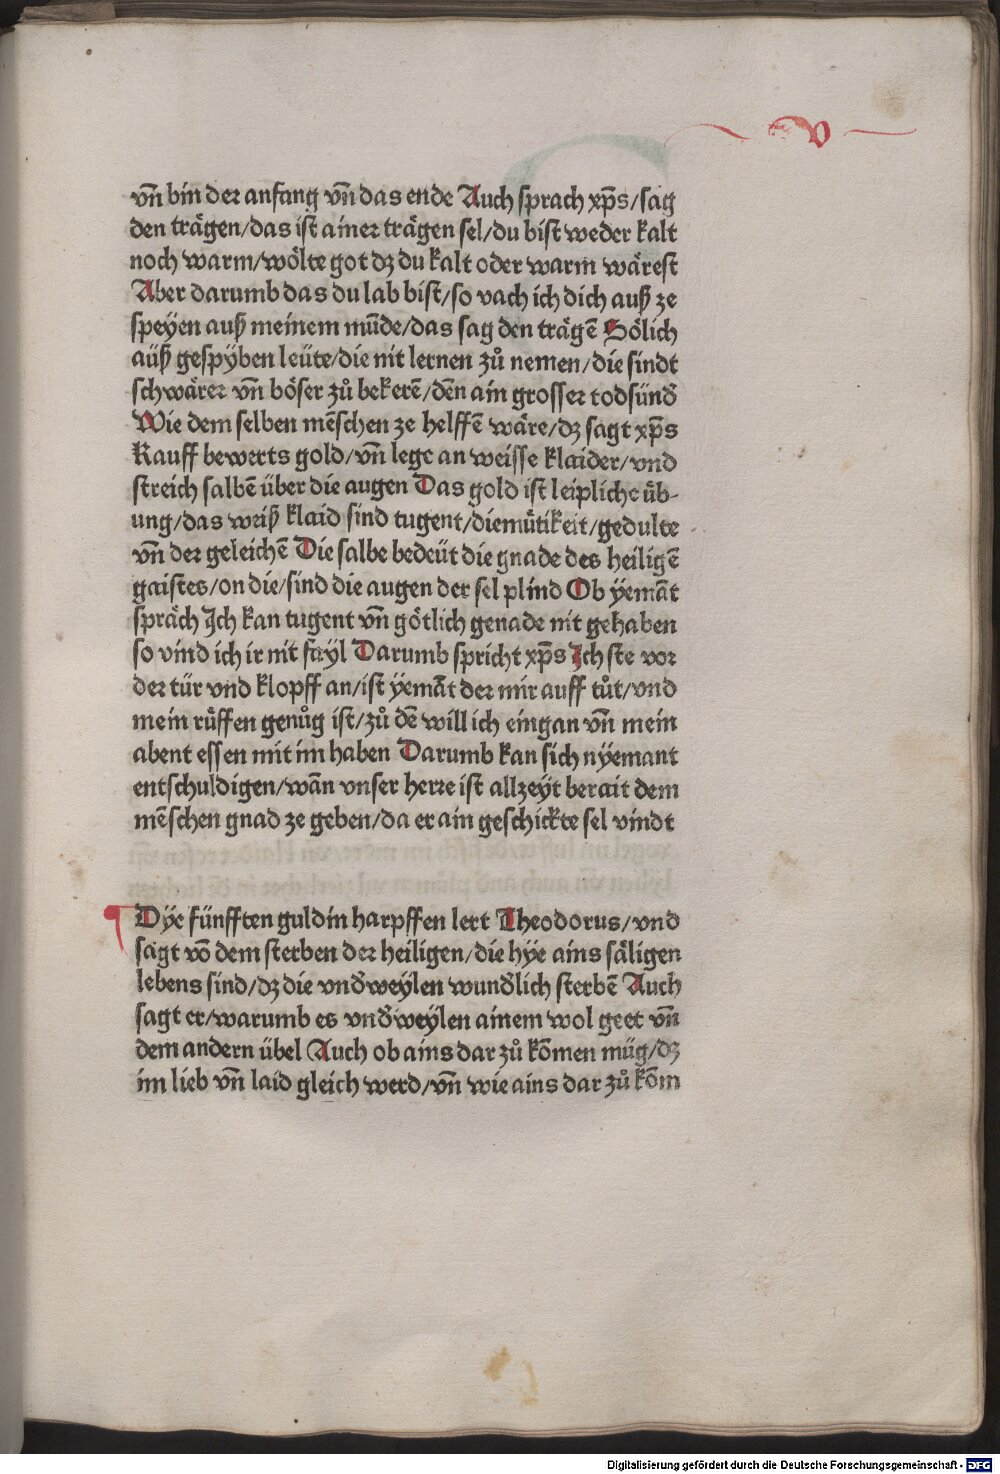 V
vn̄ bin der anfang vn̄ das ende Auch sprach xp̄s/sag
den trägen/das ist ainer trägen sel/du bist weder kalt
noch warm/wölte got dʒ du kalt oder warm wärest
Aber darumb das du lab bist/so vach ich dich auß ze
speÿen auß meinem mūde/das sag den trägē Sölich
auß gespÿben leüte/die nit lernen zů nemen/die sindt
schwärer vn̄ böser zů bekerē/dēn ain grosser todsünd
Wie dem selben mēschen ze helffē wäre/dʒ sagt xp̄s
Kauff bewerts gold/vn̄ lege an weisse klaider/vnd
streich salbē über die augen Das gold ist leipliche üb-
ung/das weiß klaid sind tugent/diemütikeit/gedulte
vn̄ der geleichē Die salbe bedeüt die gnade des heiligē
gaistes/on die/sind die augen der sel plind Ob ÿemāt
spräch Jch kan tugent vn̄ götlich genade nit gehaben
so vind ich ir nit fayl Darumb spricht xp̄s Jch ste vor
der tür vnd klopff an/ist ÿemāt der mir auff tůt/vnd
mein rüffen genůg ist/zů dē will ich eingan vn̄ mein
abent essen mit im haben Darumb kan sich nÿemant
entschuldigen/wān vnser herre ist allzeÿt berait dem
mēschen gnad ze geben/da er ain geschickte sel vindt
¶ Dÿe fünfften guldin harpffen lert Theodorus/vnd
sagt vō dem sterben der heiligen/die hÿe ains säligen
lebens sind/dʒ die vnd̕weÿlen wund̕lich sterbē Auch
sagt er/warumb es vnd̕weÿlen ainem wol geet vn̄
dem andern übel Auch ob ains dar zů kōmen müg/dʒ
im lieb vn̄ laid gleich werd/vn̄ wie ains dar zů kōm
Digitalisierung gefördert durch die Deutsche Forschungsgemeinschaft - DFG